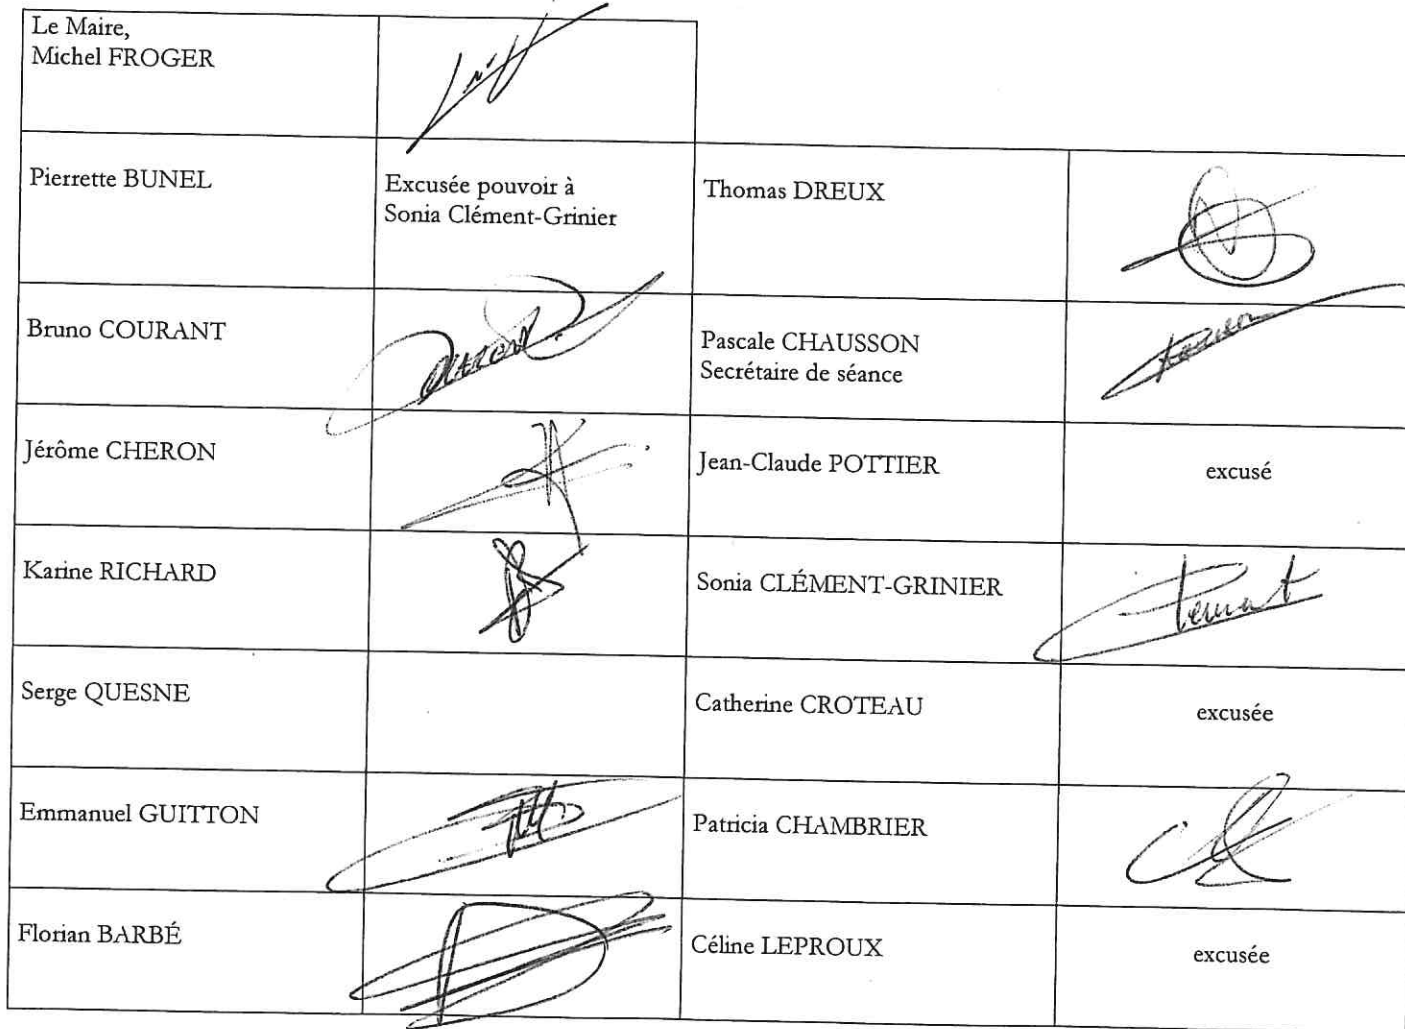 Le Maire,
Michel FROGER
Pierrette BUNEL
Excusée pouvoir à
Sonia Clément-Grinier
Thomas DREUX
Bruno COURANT
Pascale CHAUSSON
Secrétaire de séance
Jérôme CHERON
Jean-Claude POTTIER
excusé
Karine RICHARD
Sonia CLÉMENT-GRINIER
Serge QUESNE
Catherine CROTEAU
excusée
Emmanuel GUITTON
Patricia CHAMBRIER
Florian BARBÉ
Céline LEPROUX
excusée